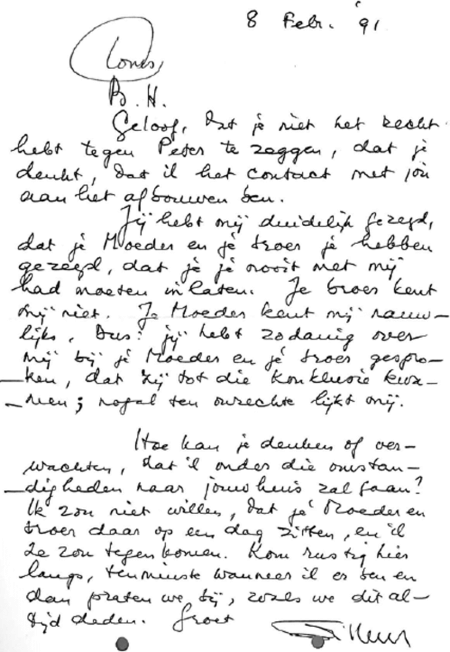 8 Febr. '91
Loues,
B.H.
Geloof, dat je niet het recht
hebt tegen Peter te zeggen, dat je
denkt, dat ik het contact met jou
aan het afbouwen ben.
Jij hebt mij duidelijk gezegd,
dat je Moeder en je broer je hebben
gezegd, dat je je nooit met mij
had moeten inlaten. Je broer kent
mij niet. Je Moeder kent mij nauw-
lijks. Dus: jij hebt zodanig over
mij bij je Moeder en je broer gespro-
ken, dat zij tot die konklusie kwa-
men; nogal ten onrechte lijkt mij.
Hoe kan je denken of ver-
wachten, dat ik onder die omstan-
digheden naar jouw huis zal gaan?
Ik zou niet willen, dat je Moeder en
broer daar op een dag zitten, en ik
ze zou tegenkomen. Kom rustig hier
langs, tenminste wanneer ik er ben en
dan praten we bij, zoals we dit al-
tijd deden. Groet